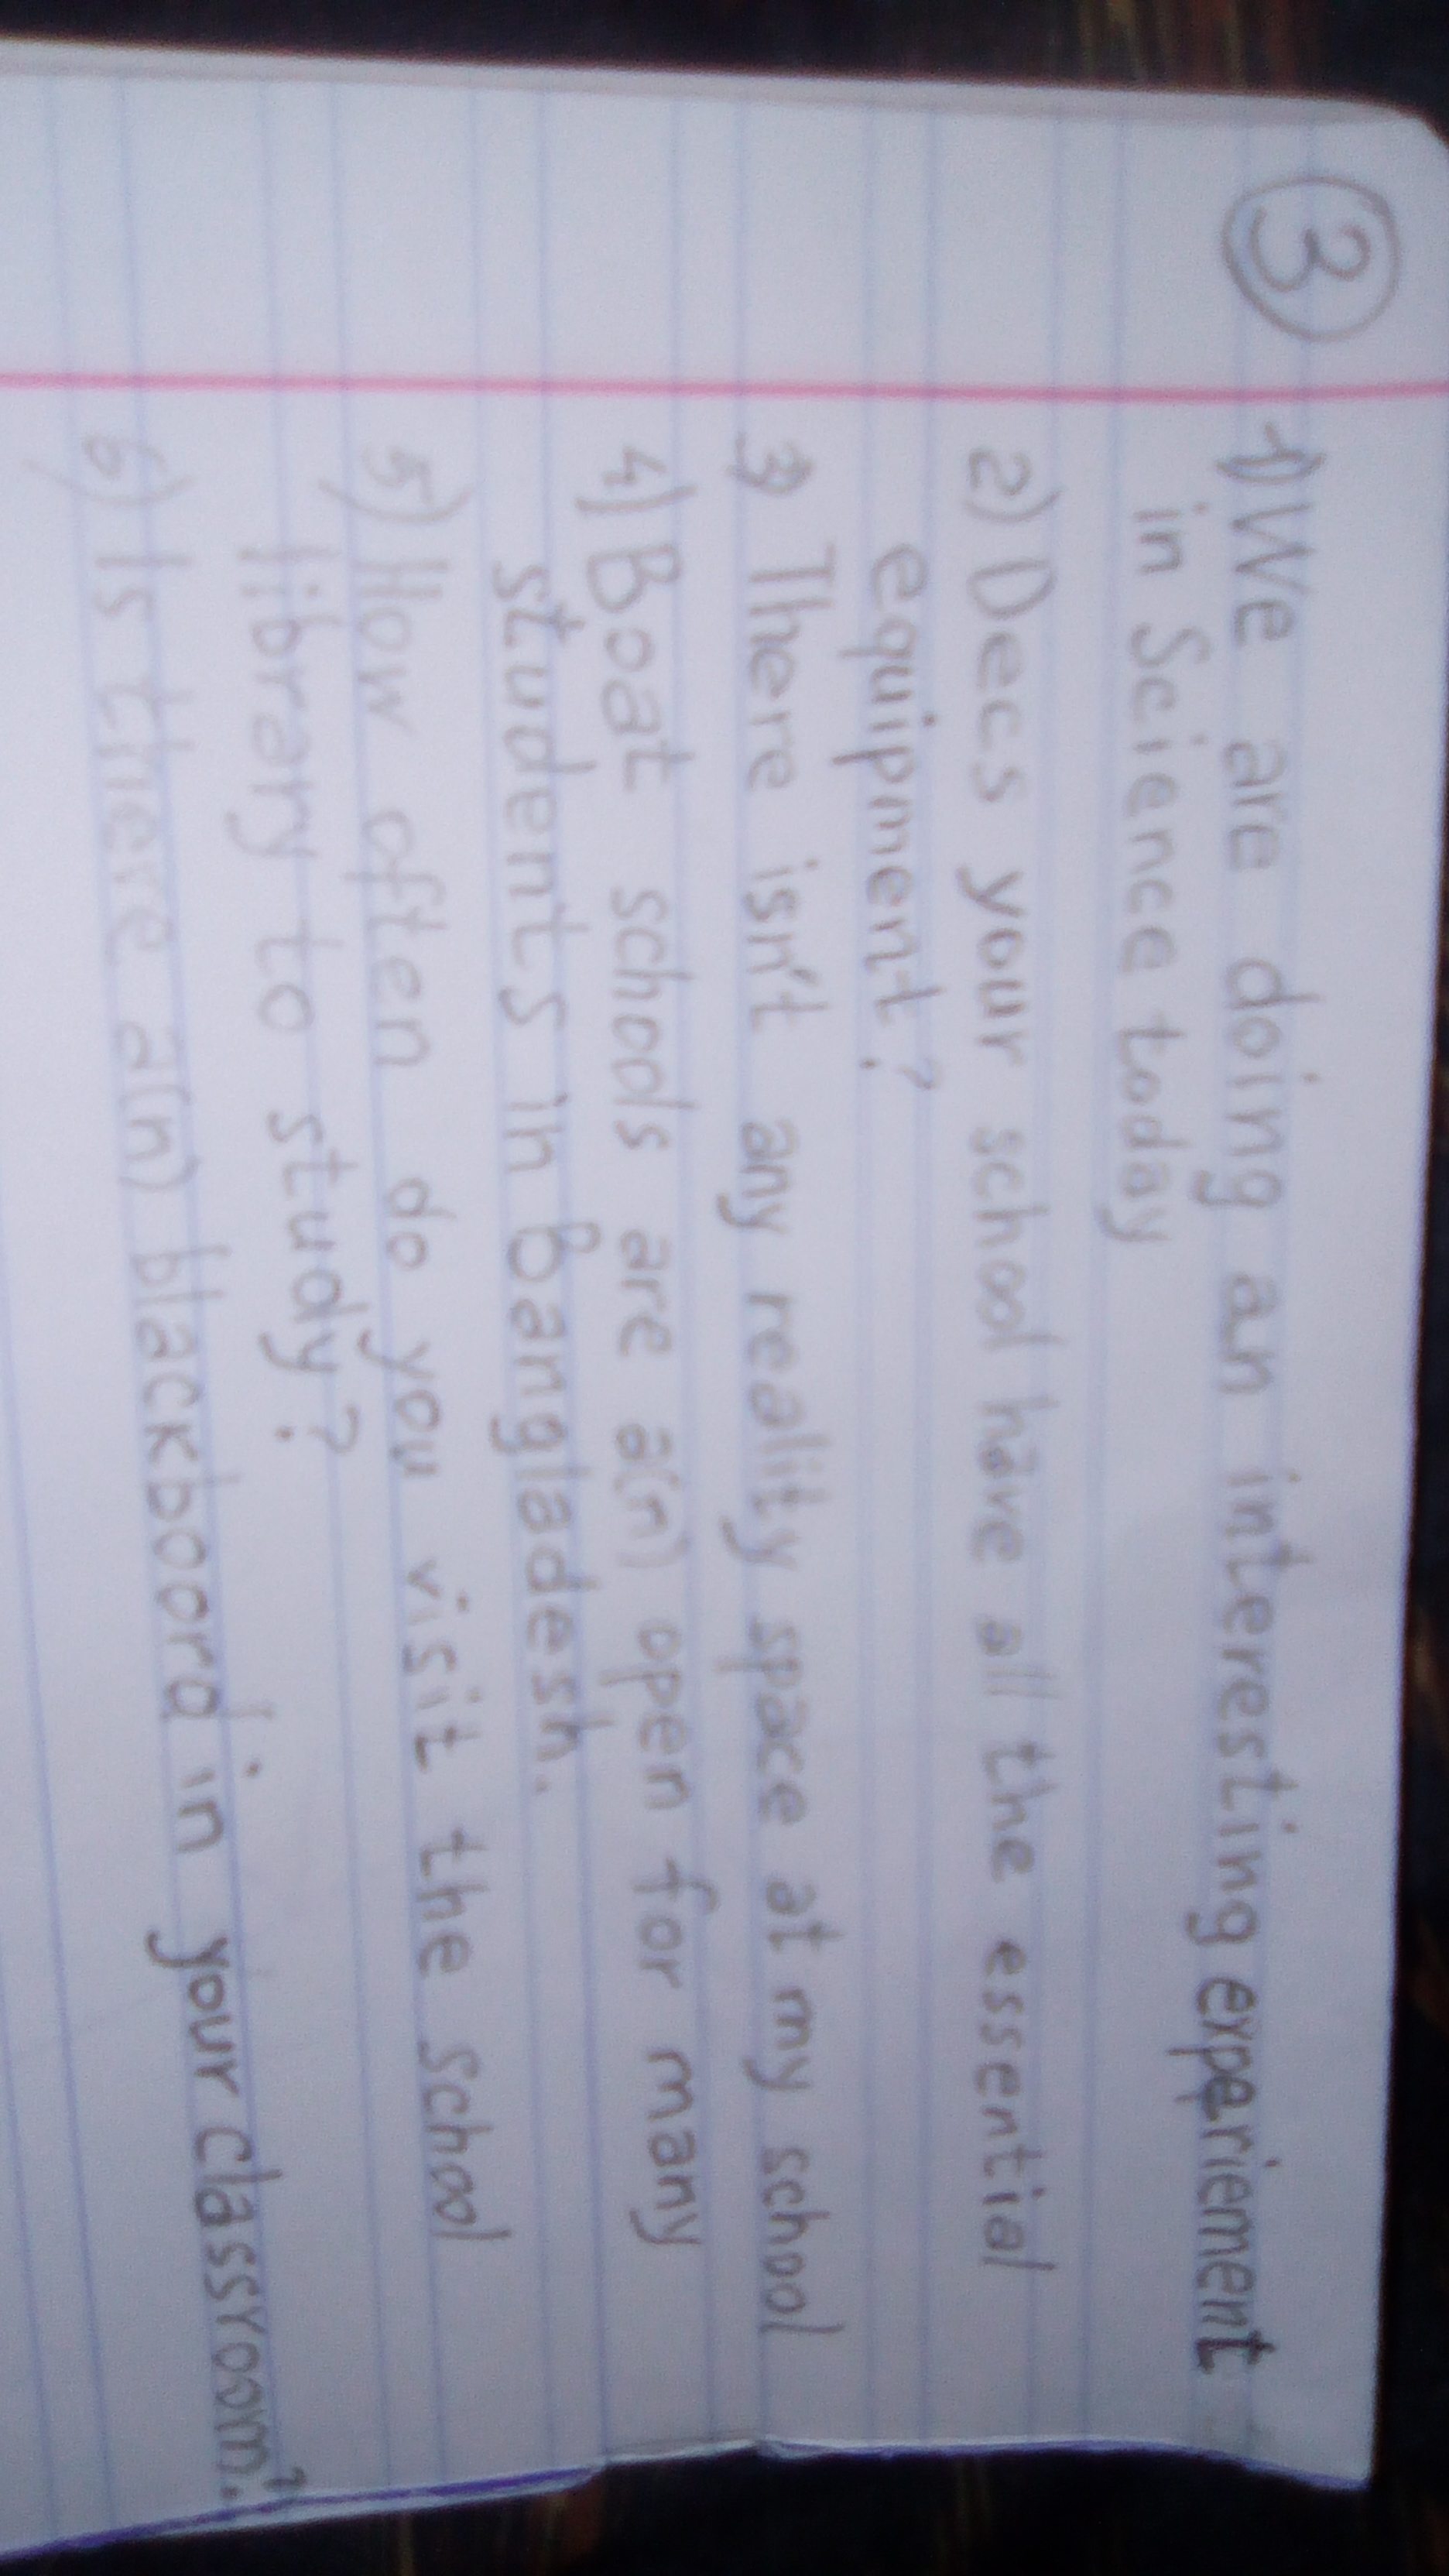 3
1) We are doing an interesting experiement
in Science today
2) Dees your school have all the essential
equipment?
3) There isn't any reality space at my school
4) Boat schools are a(n) open for many
students in Bangladesh.
5) How often do you visit the school
library to study?
6) Is there a(n) blackboord in your classroom?